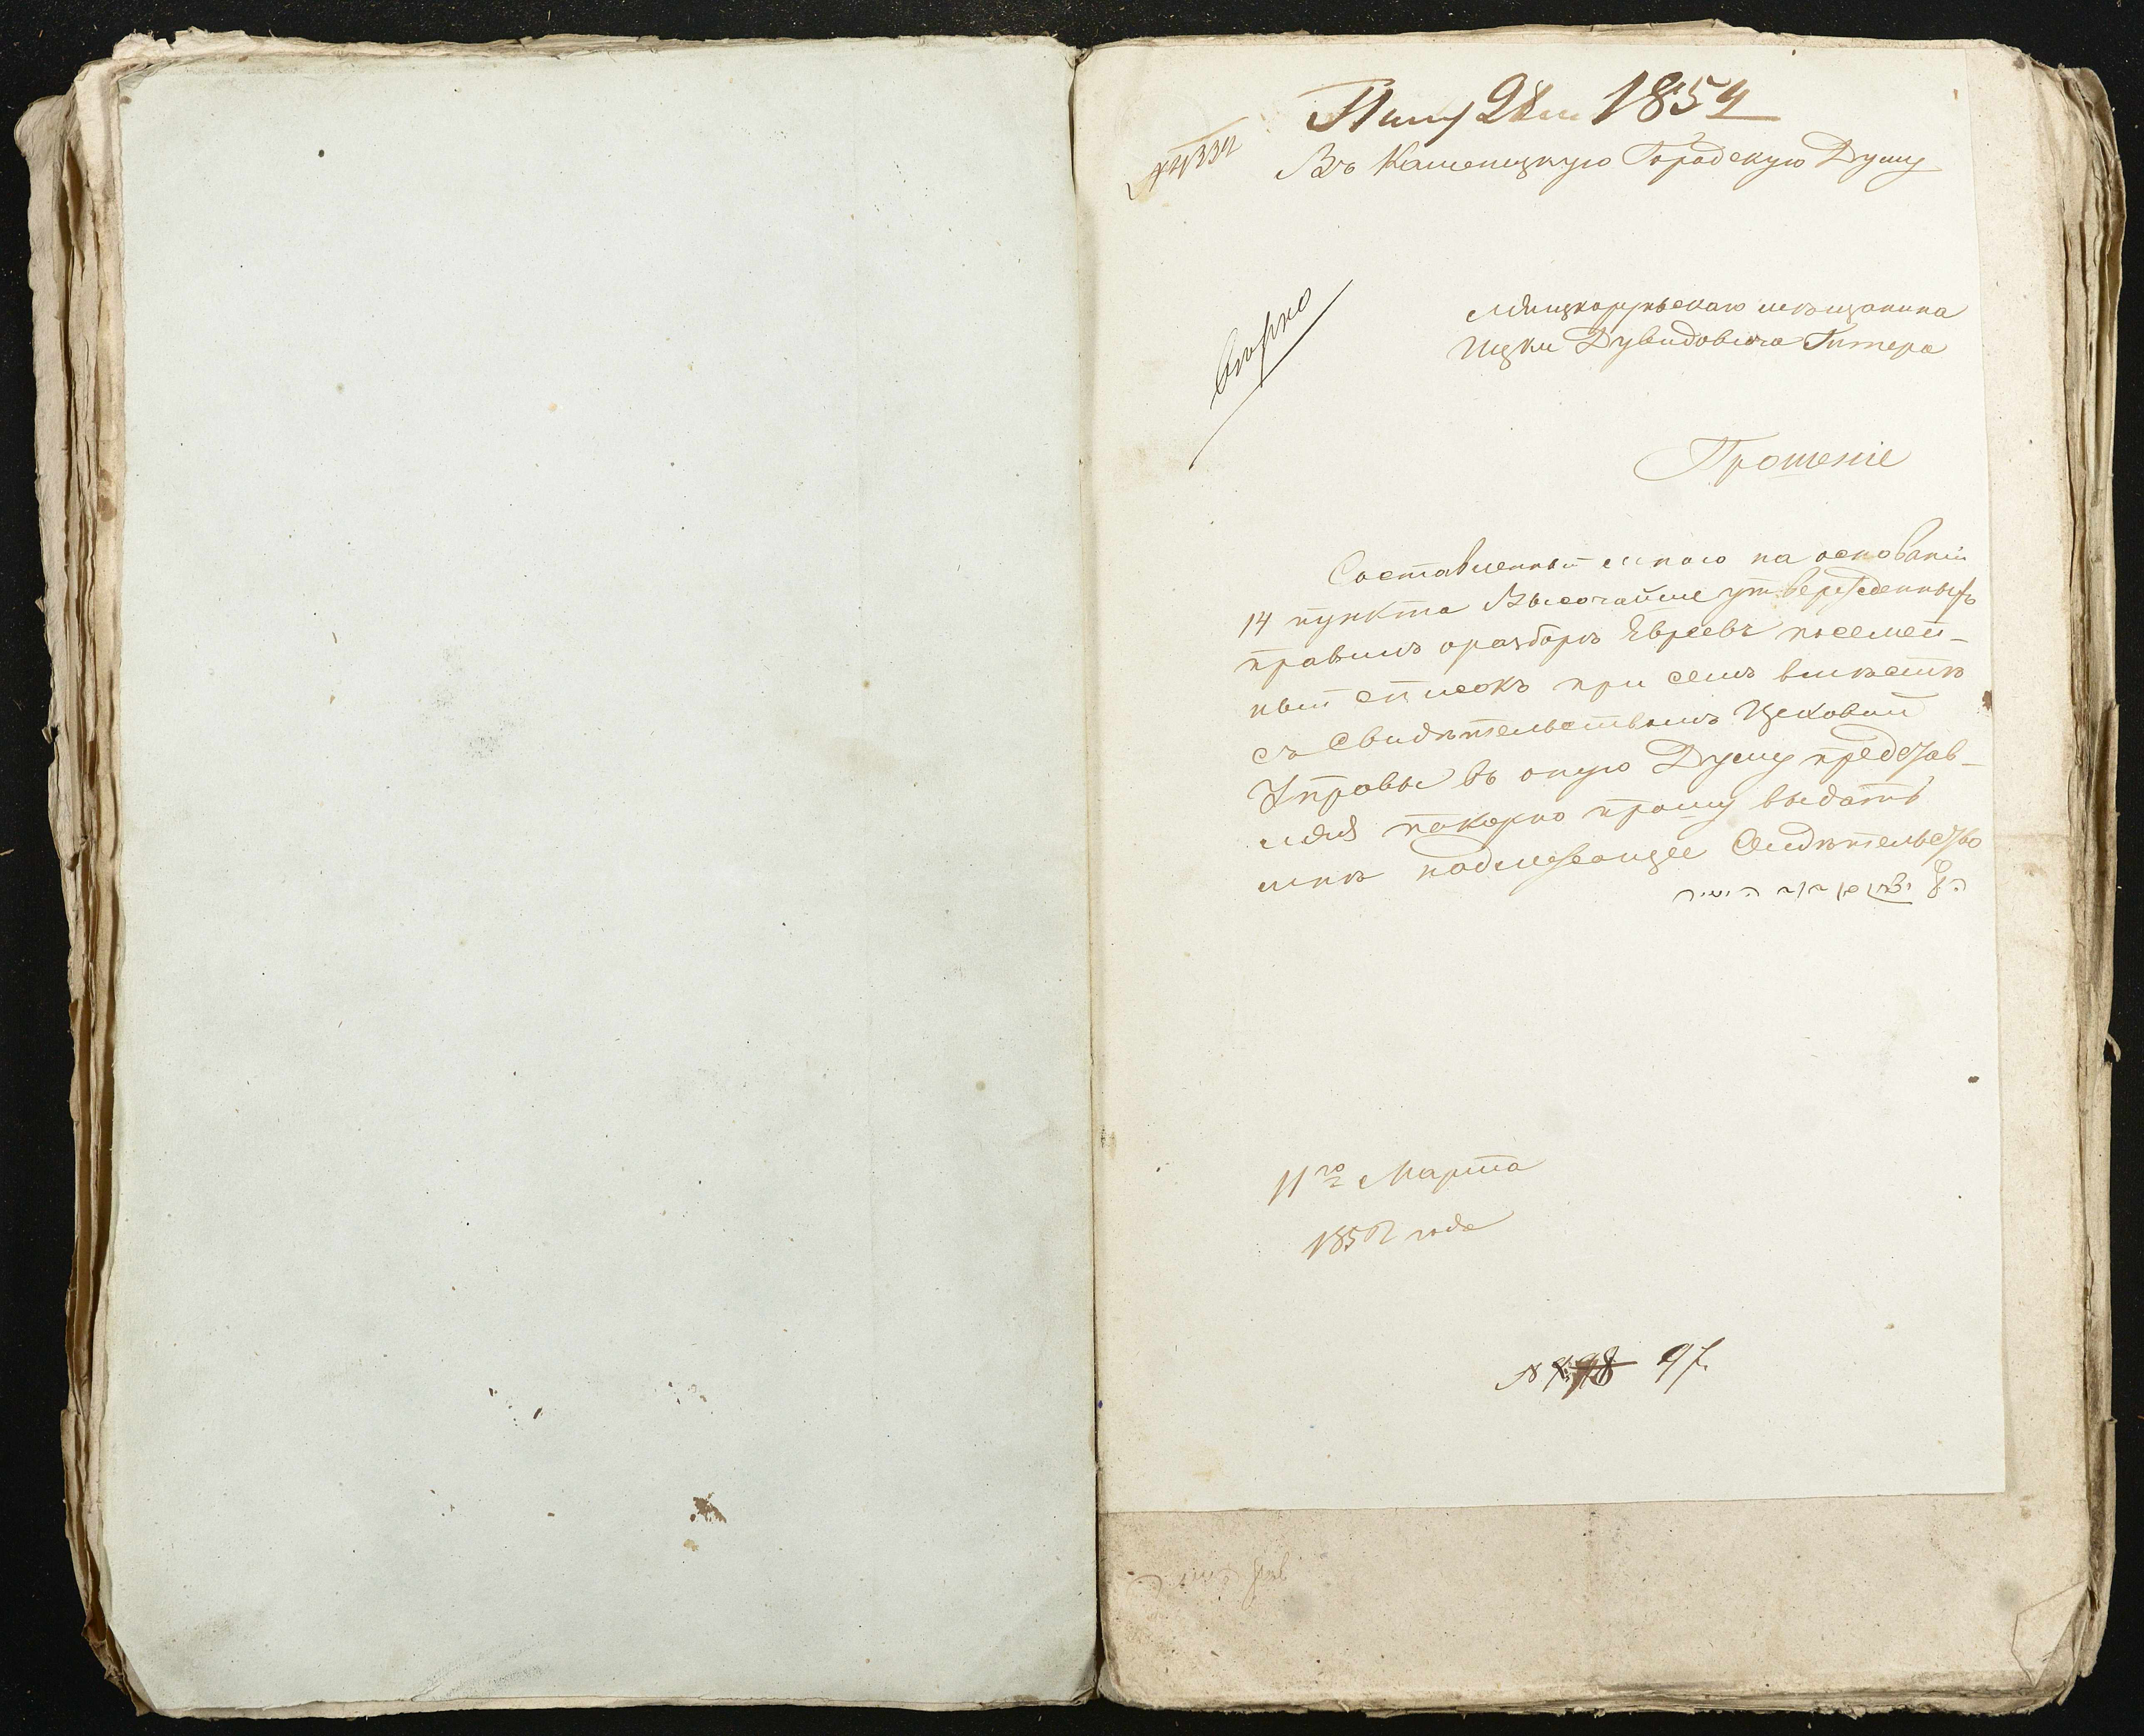 28 1854
Въ Каменецкую Городскую Думу
мѣщанина
Ицки Дувидовича Гитера
Прошеніе
Составленный мною на основаніи
14 пункта Высочайше утвержденныхъ
правилъ о разборѣ Евреевъ посемей-
ный списокъ при семъ вмѣстѣ
съ Свидѣтельствомъ Цеховой
Управы въ оную Думу представ-
ляя покорно прошу выдать
мнѣ надлежащее Свидѣтельство
11го Марта
1852 года
97.